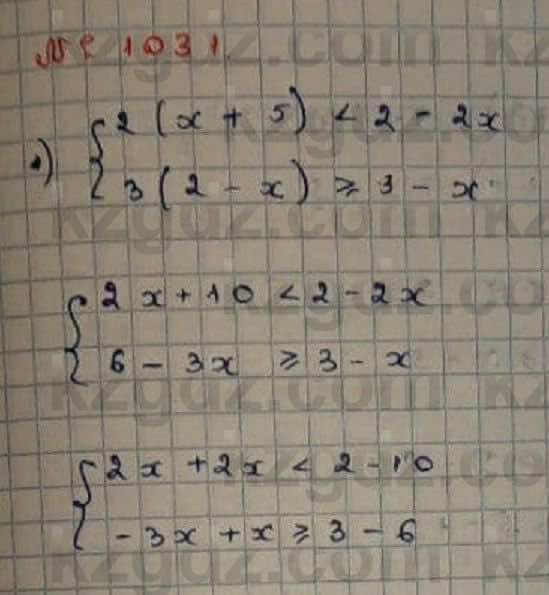 № 1031
1) { 2(x + 5) < 2 - 2x
3(2 - x) ≥ 3 - x
{ 2x + 10 < 2 - 2x
6 - 3x ≥ 3 - x
{ 2x + 2x < 2 - 10
-3x + x ≥ 3 - 6